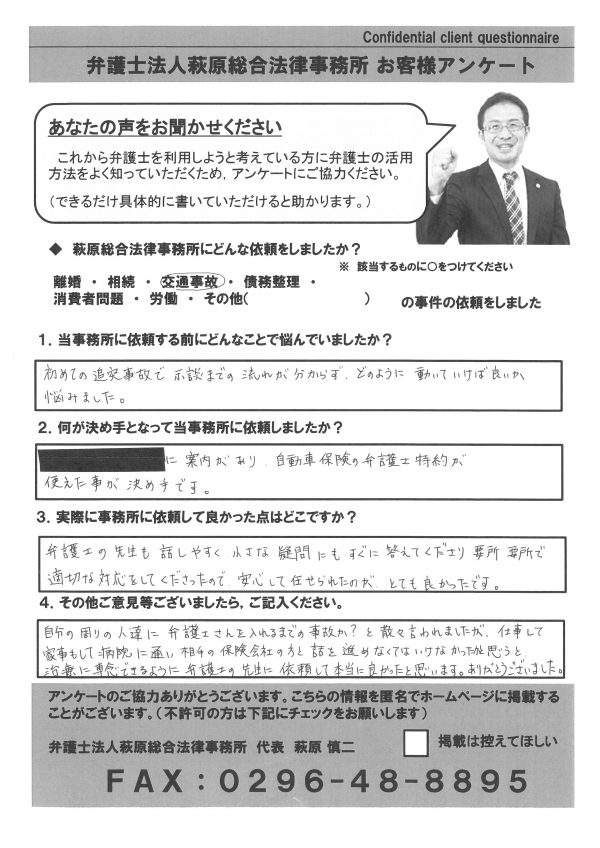 Confidential client questionnaire
弁護士法人萩原総合法律事務所 お客様アンケート
あなたの声をお聞かせください
これから弁護士を利用しようと考えている方に弁護士の活用
方法をよく知っていただくため，アンケートにご協力ください。
（できるだけ具体的に書いていただけると助かります。）
◆ 萩原総合法律事務所にどんな依頼をしましたか？
※ 該当するものに○をつけてください
離婚 ・ 相続 ・ 交通事故 ・ 債務整理 ・
消費者問題 ・ 労働 ・ その他( ) の事件の依頼をしました
１．当事務所に依頼する前にどんなことで悩んでいましたか？
初めての追突事故で示談までの流れが分からず、どのように動いていけば良いか
悩みました。
２．何が決め手となって当事務所に依頼しましたか？
に案内があり、自動車保険の弁護士特約が
使えた事が決め手です。
３．実際に事務所に依頼して良かった点はどこですか？
弁護士の先生も話しやすく、小さな疑問にもすぐに答えてくださり要所要所で
適切な対応をしてくださったので、安心して任せられたのが、とても良かったです。
４．その他ご意見等ございましたら，ご記入ください。
自分の周りの人達に弁護士さんを入れるまでの事故か？と散々言われましたが、仕事して
家事もして病院に通い相手の保険会社の方と話を進めなくてはいけなかったかと思うと、
治療に専念できるように弁護士の先生に依頼して本当に良かったと思います。ありがとうございました。
アンケートのご協力ありがとうございます。こちらの情報を匿名でホームページに掲載する
ことがございます。（不許可の方は下記にチェックをお願いします）
弁護士法人萩原総合法律事務所 代表 萩原 慎二
掲載は控えてほしい
ＦＡＸ：０２９６－４８－８８９５